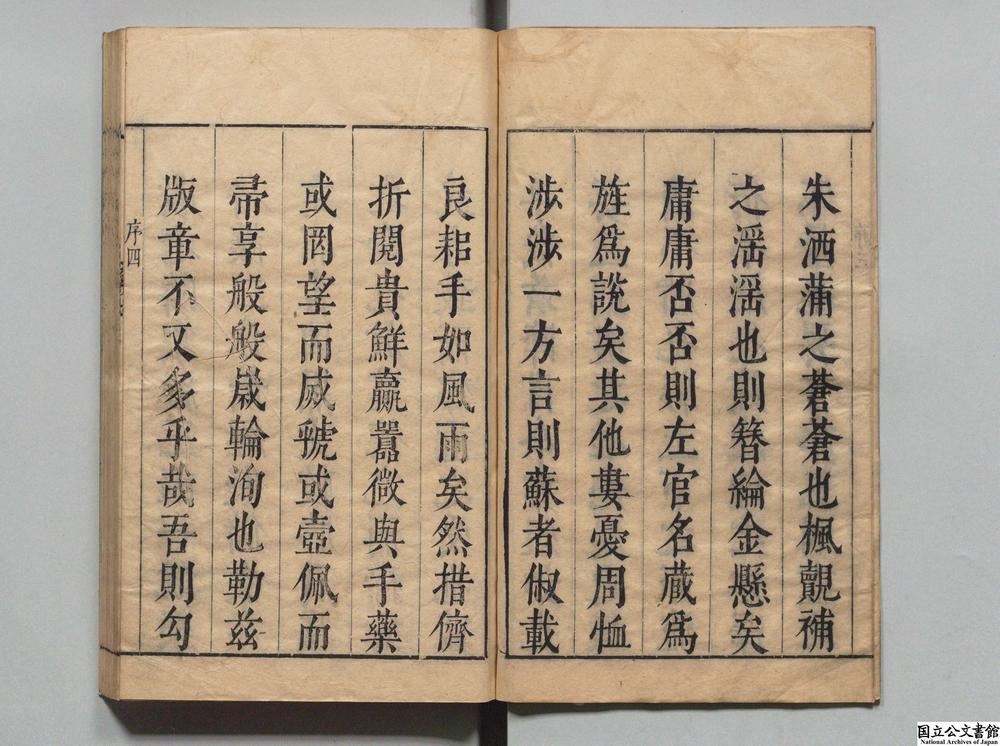 朱洒蒲之蒼蒼也楓覿補
之滛滛也則簪綸金懸矣
庸庸否否則左官名蔵爲
旌爲說矣其他婁憂周恤
涉涉一方言則蘇者俶載
良耜手如風雨矣然措儕
折閱貴鮮羸嚣微與手藥
或罔望而烕虢或壺佩而
帚享般般歲輪洵也勒兹
版章不又多乎哉吾則勾
序四
国立公文書館
National Archives of Japan